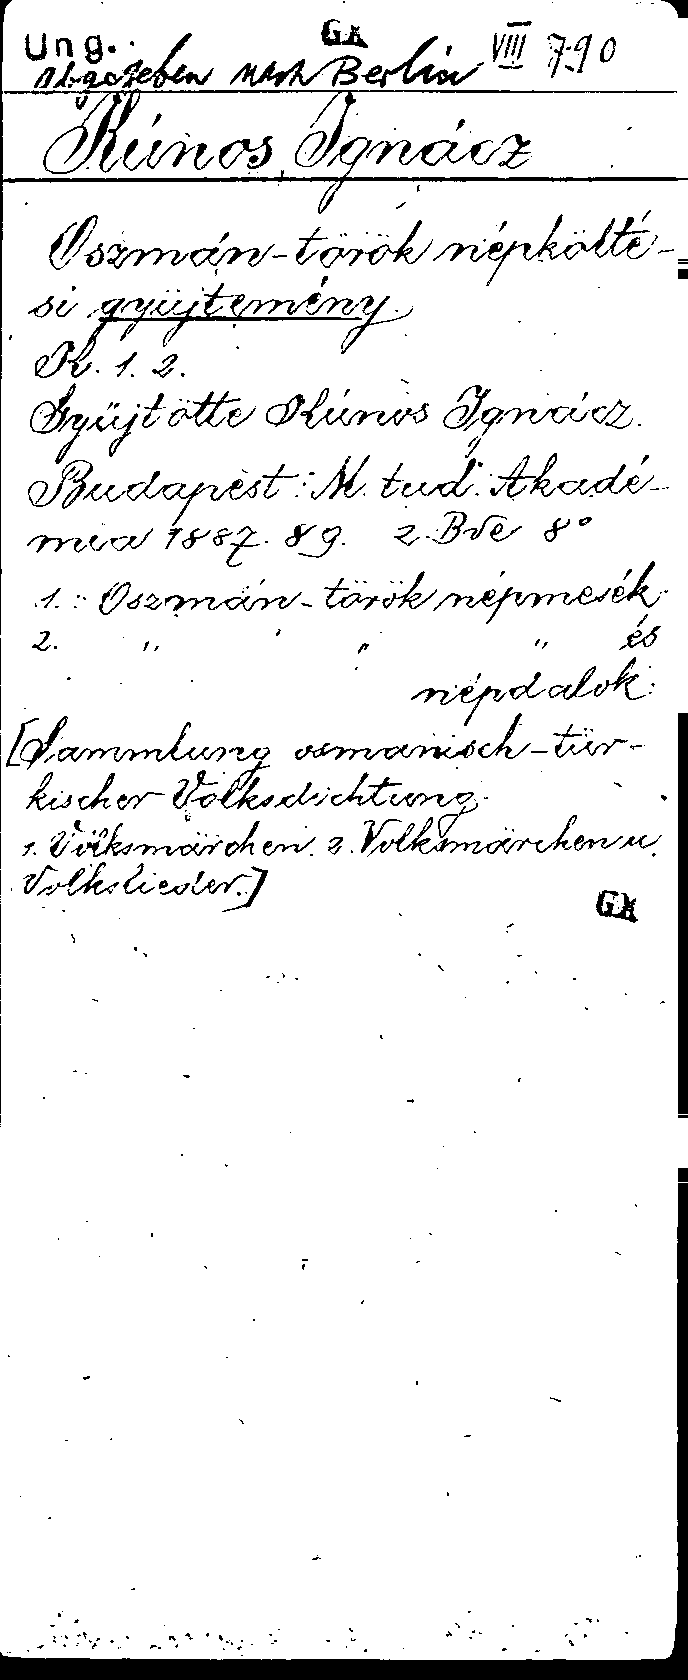 Ung. GK VIII 790
abgegeben nach Berlin
Kúnos, Ignácz
Oszmán-török népkölté-
si gyüjtemény
K. 1. 2.
Gyüjtötte Kúnos Ignácz.
Budapest: M. tud. Akadé-
mia 1887. 89. 2 Bde 8°
1.: Oszmán-török népmesék.
2. " " " és
népdalok.
[Sammlung osmanisch-tür-
kischer Volksdichtung.
1. Volksmärchen. 2. Volksmärchen u.
Volkslieder.]
GK